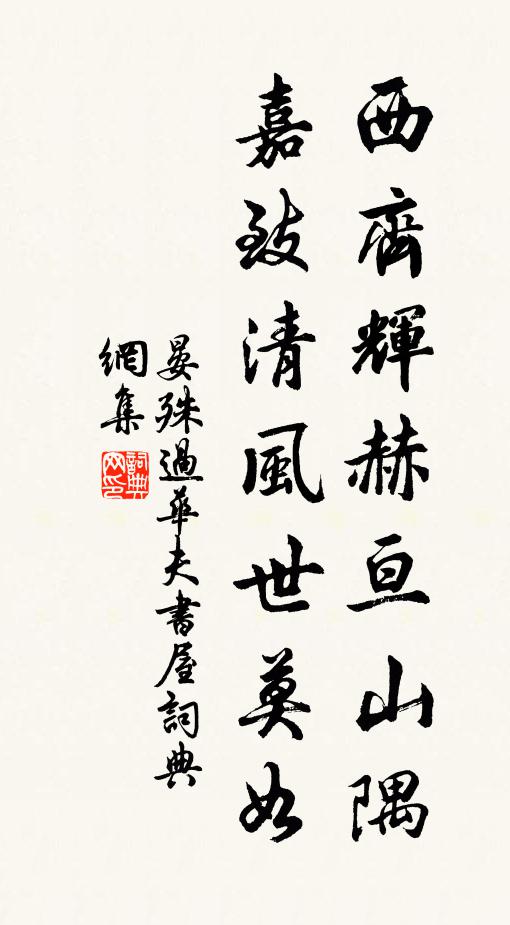 西齊輝赫亘山隅
嘉致清風世莫如
晏殊過華夫書屋詞典
網集
詞典網印